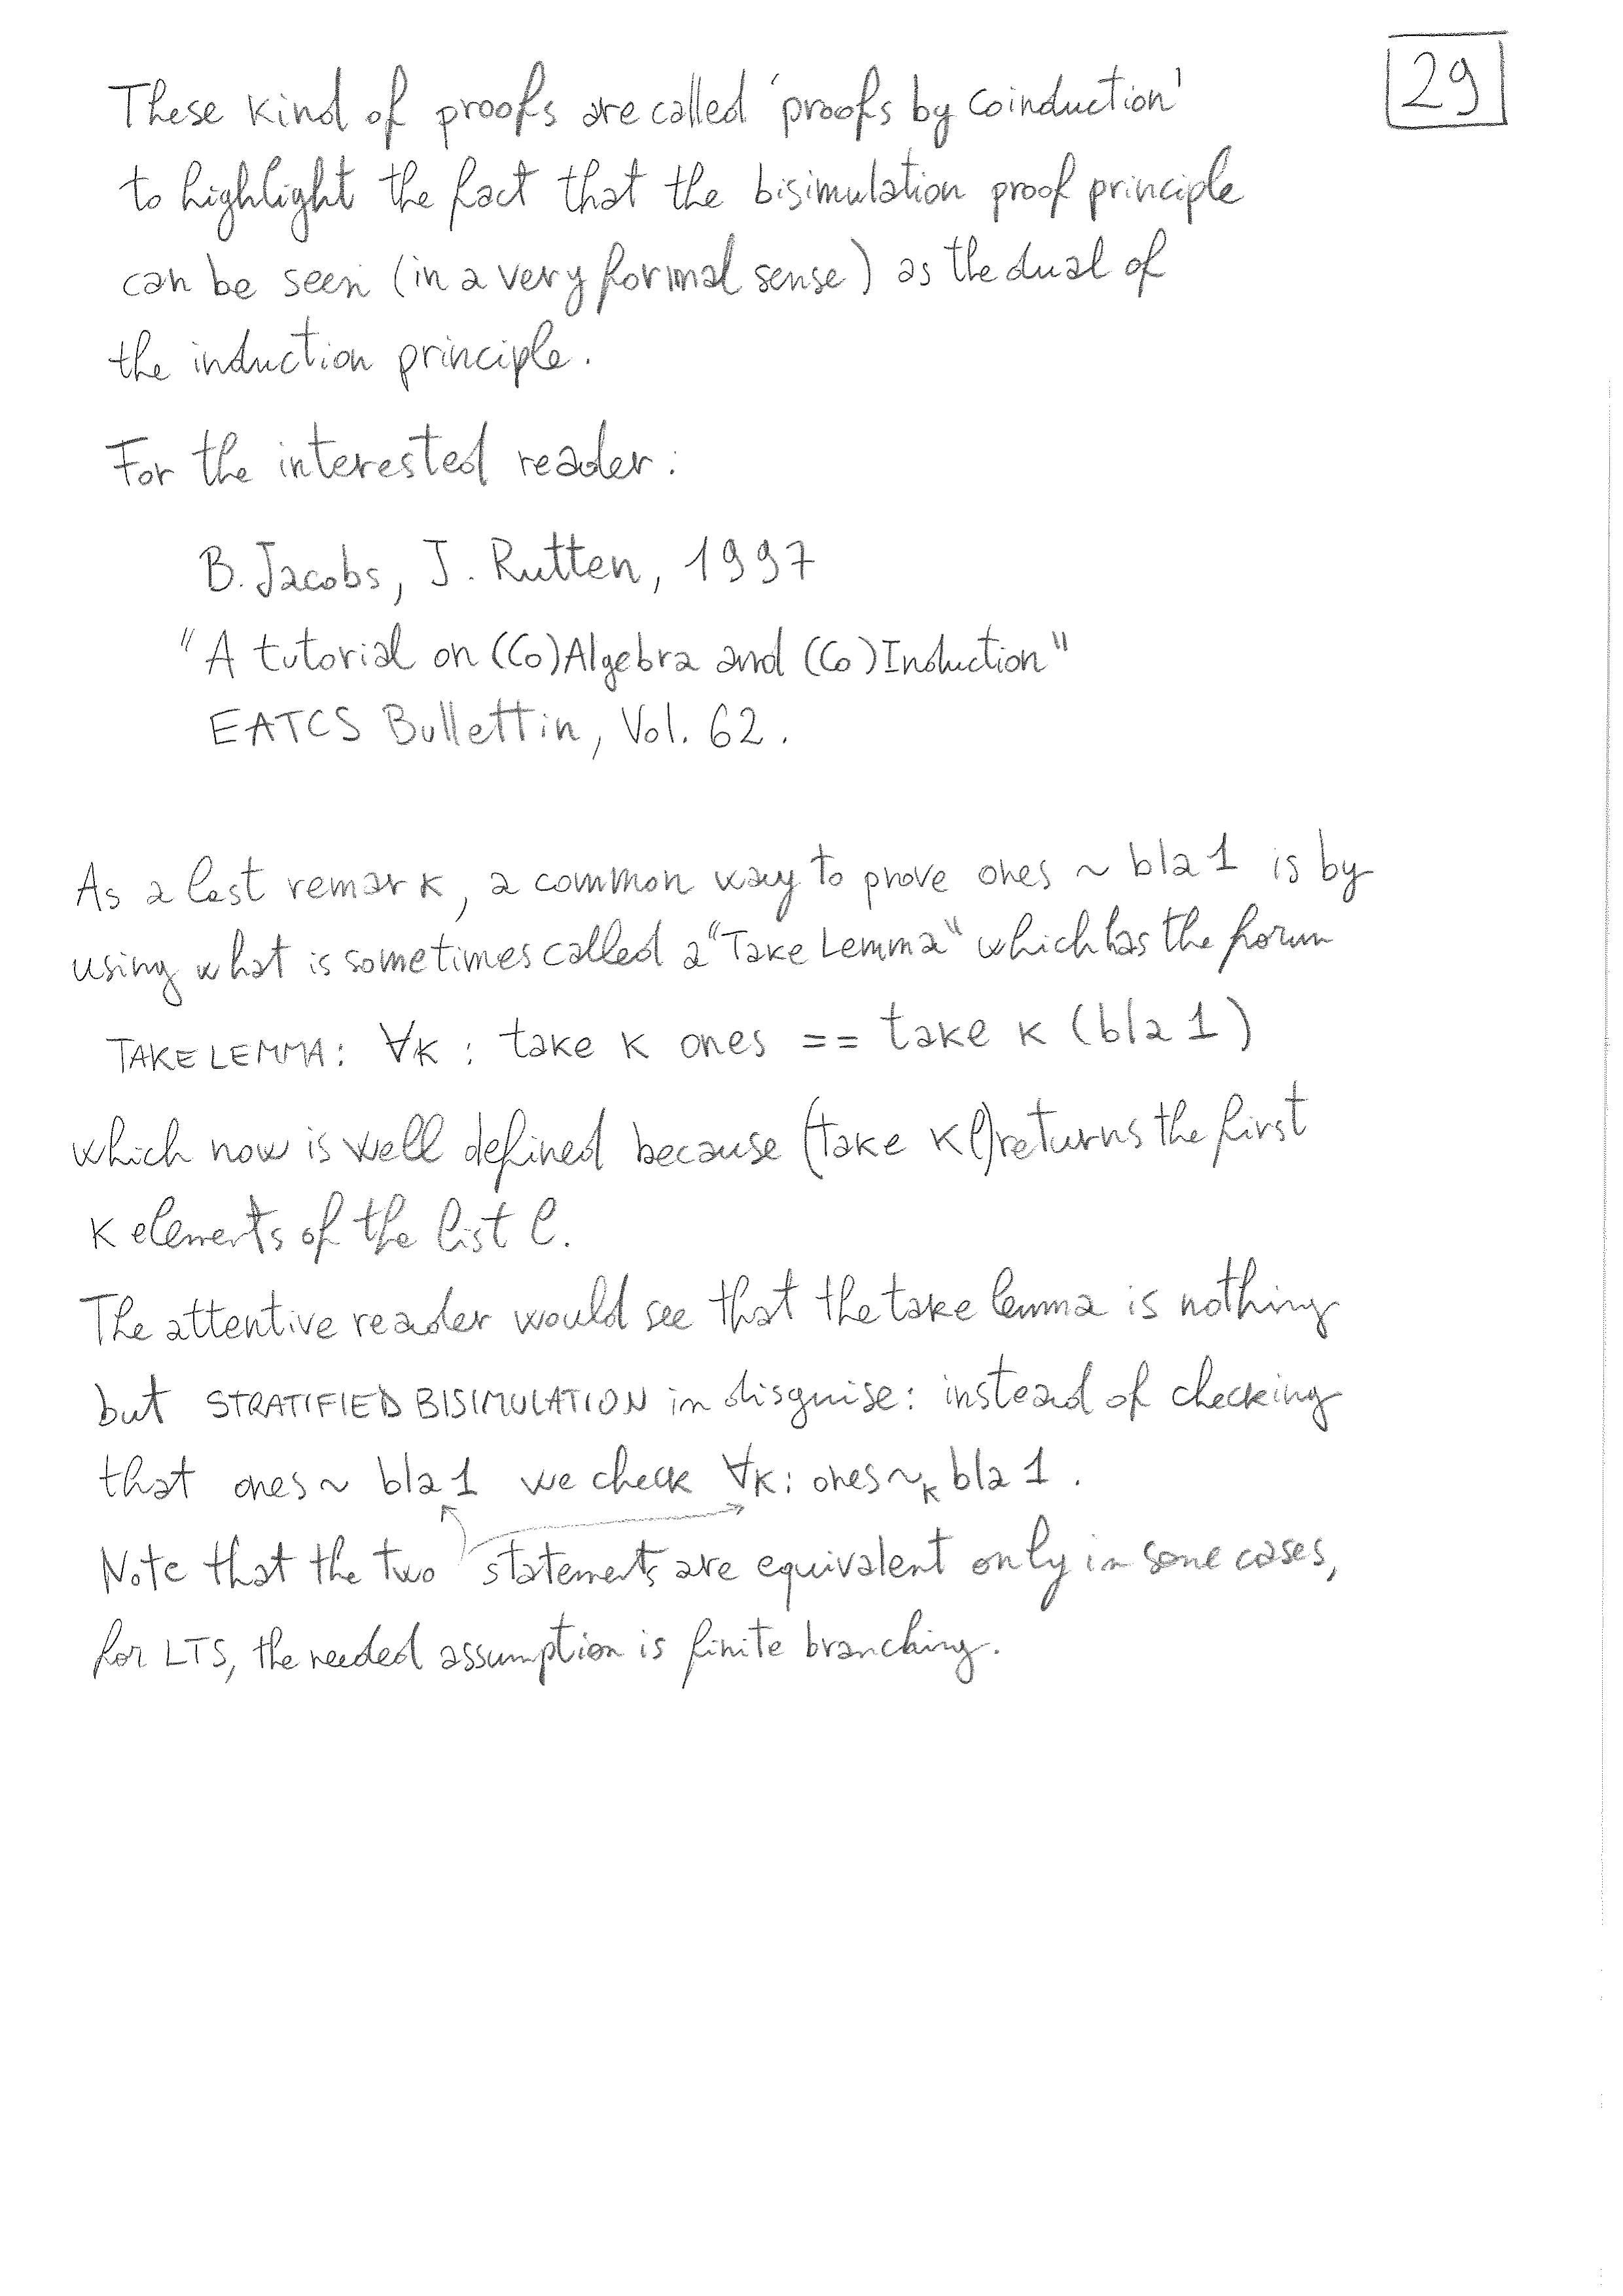 29
These kind of proofs are called 'proofs by coinduction'
to highlight the fact that the bisimulation proof principle
can be seen (in a very formal sense) as the dual of
the induction principle.
For the interested reader:
B. Jacobs, J. Rutten, 1997
"A tutorial on (Co)Algebra and (Co)Induction"
EATCS Bullettin, Vol. 62.
As a last remark, a common way to prove ones ~ bla 1 is by
using what is sometimes called a "Take Lemma" which has the form
TAKE LEMMA: ∀k : take k ones == take k (bla 1)
which now is well defined because (take k l) returns the first
k elements of the list l.
The attentive reader would see that the take lemma is nothing
but STRATIFIED BISIMULATION in disguise: instead of checking
that ones ~ bla 1 we check ∀k: ones ~ₖ bla 1.
Note that the two statements are equivalent only in some cases,
for LTS, the needed assumption is finite branching.